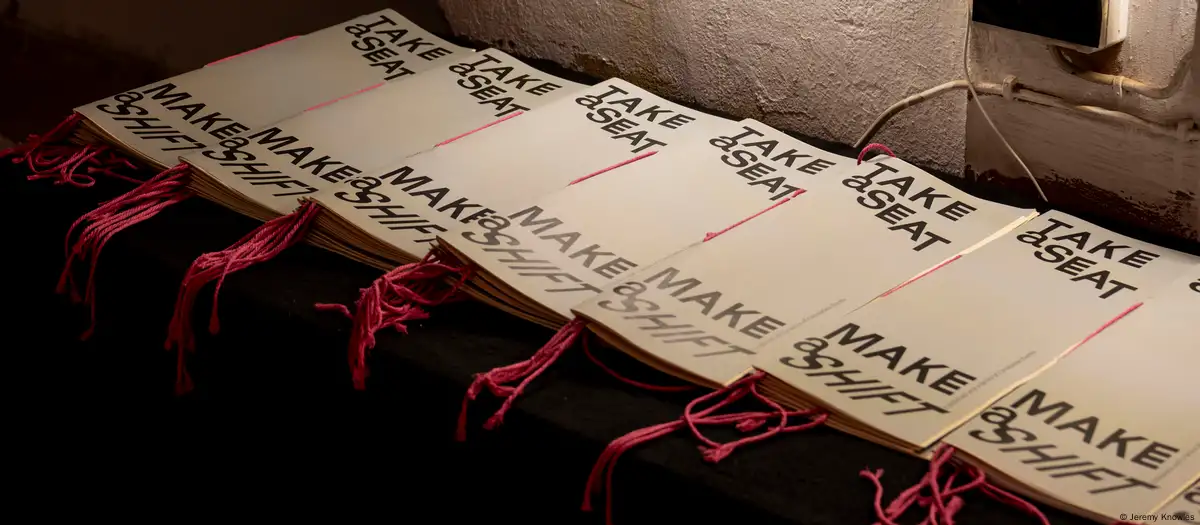 TAKE
aSEAT
MAKE
aSHIFT
TAKE
aSEAT
MAKE
aSHIFT
TAKE
aSEAT
MAKE
aSHIFT
TAKE
aSEAT
MAKE
aSHIFT
TAKE
aSEAT
MAKE
aSHIFT
TAKE
aSEAT
MAKE
aSHIFT
MAKE
aSHIFT
© Jeremy Knowles